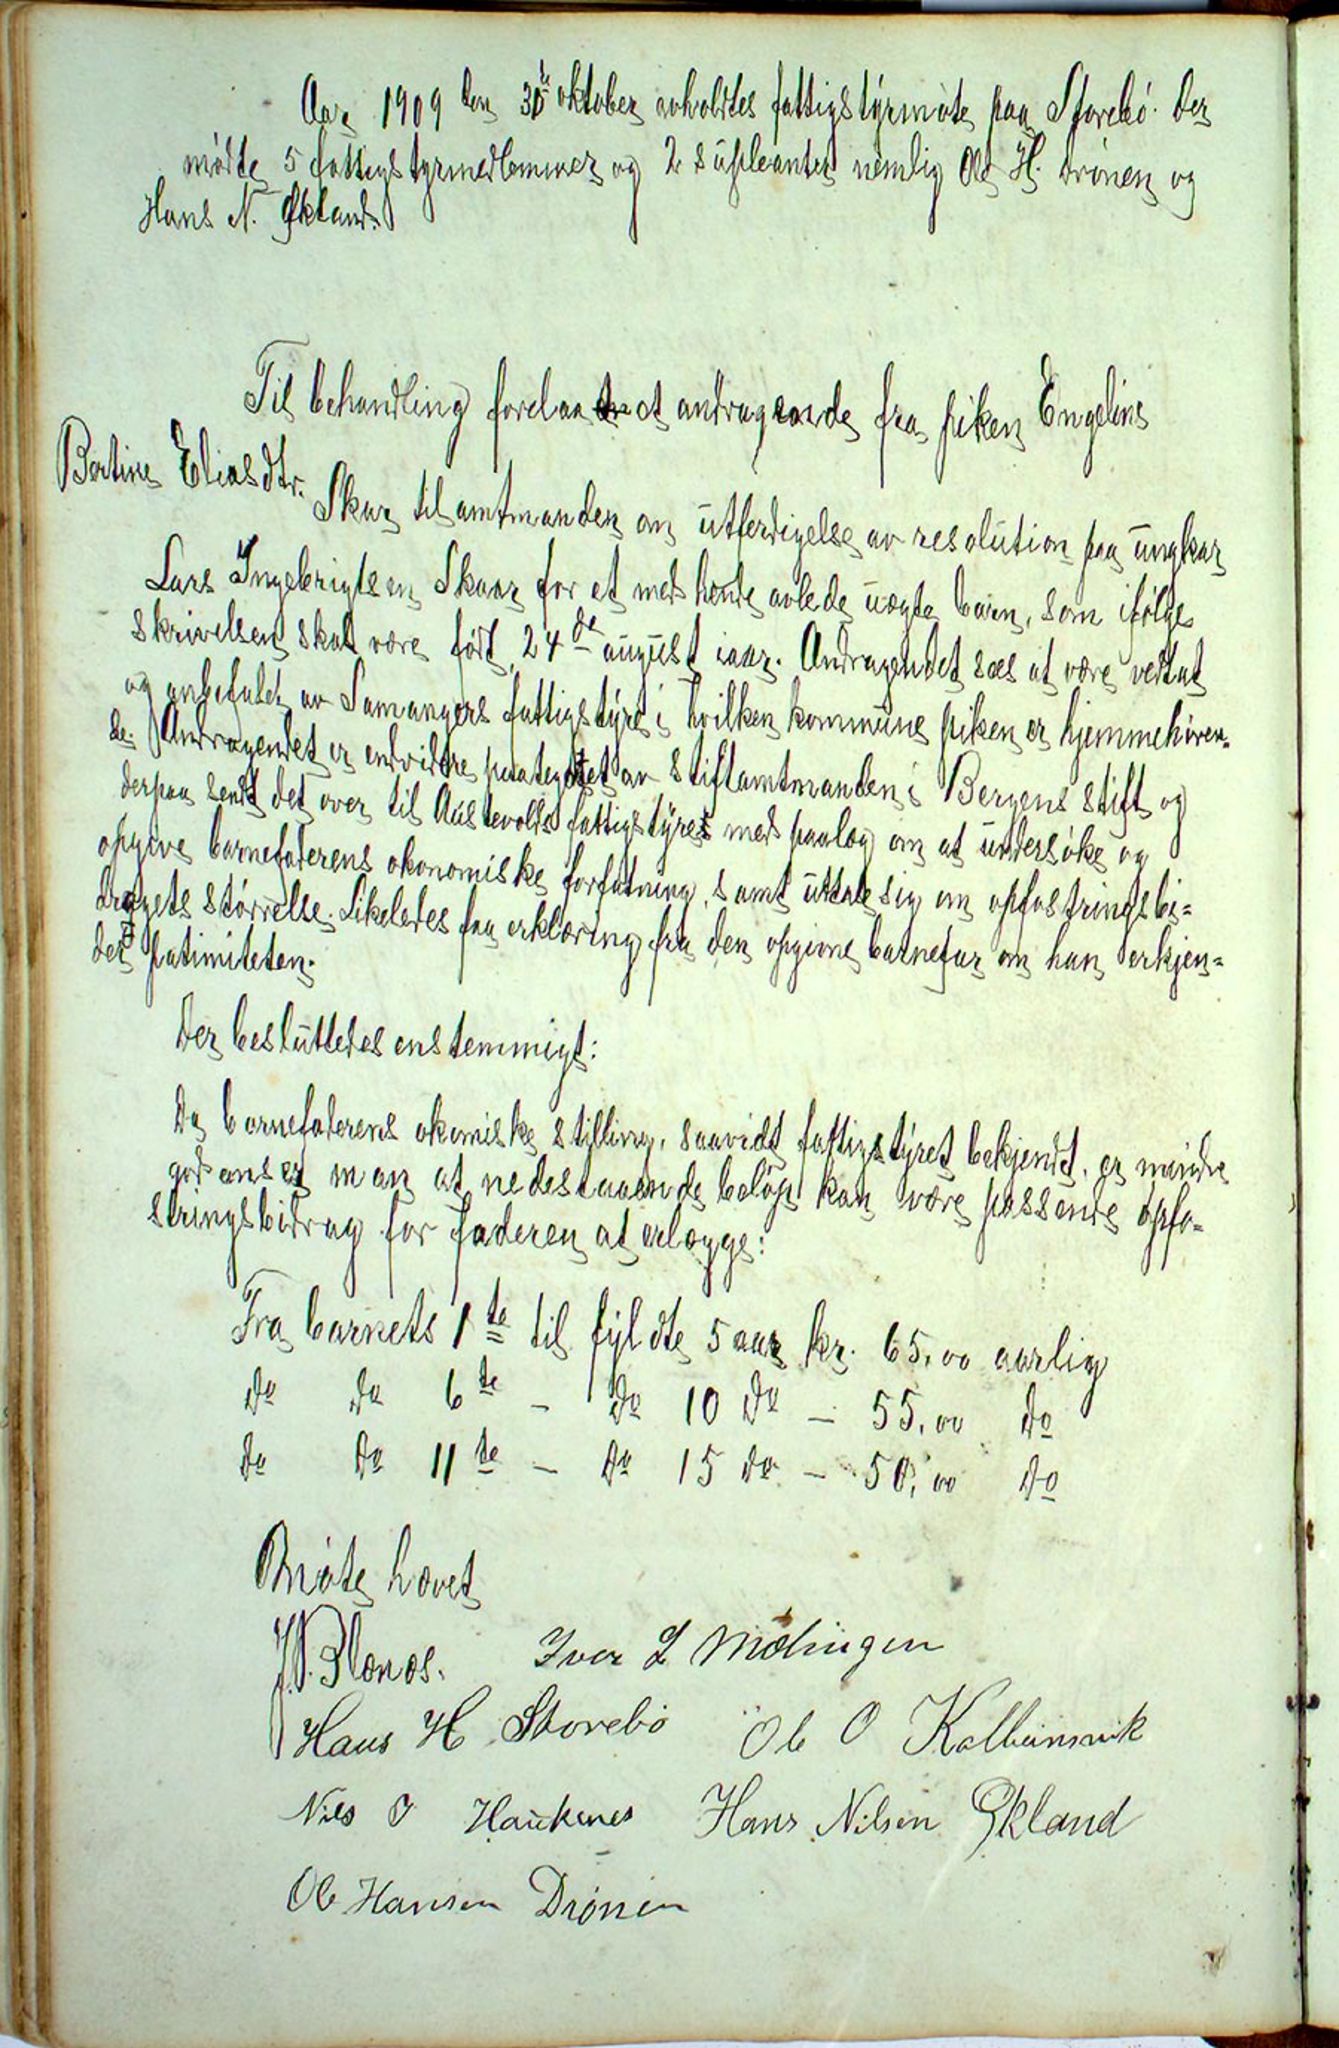 Aar 1909 den 30te oktober avholdtes fattigstyrmøte paa Storebø. Der
mødte 5 fattigstyrmedlemmer og 2 supleanter nemlig Ole H. Drønen og
Hans N. Økland.
Til behandling forelaa et andragende fra piken Engeline
Bertine Eliasdtr. Skar til amtmanden om utferdigelse av resolution paa ungkar
Lars Ingebrigtsen Skaar for et med hende avlede uægte barn, som ifølge
skrivelsen skal være født 24de august iaar. Andragendet sees at være vedtat
og anbefalet av Samangers fattigstyre i hvilken kommune piken er hjemmehøren-
de. Andragendet er endvidere paategnet av stiftamtmanden i Bergens stift og
derpaa sendt det over til Austevolds fattigstyre med paalæg om at undersøke og
opgive barnefaderens økonomiske forfatning, samt uttale sig om opfostringsbi=
dragets størrelse. Likeledes faa erklæring fra den opgivne barnefar om han erkjen=
der patimiteten.
Der besluttedes enstemmigt:
Da barnefaderens økomiske stilling, saavidt fattigstyret bekjendt, er mindre
god anser man at nedestaaende beløp kan være passende opfo-
stringsbidrag for faderen at erlægge:
Fra barnets 1ste til fyldte 5 aar kr. 65,00 aarlig
do do 6te - do 10 do - 55,00 do
do do 11te - do 15 do - 50,00 do
Møte hævet
J. N. Blænæs. Iver L Møhingen
Hans H Storebø Ole O Kalbeinsvik
Nils J Haukenes Hans Nilsen Økland
Ole Hansen Drønen